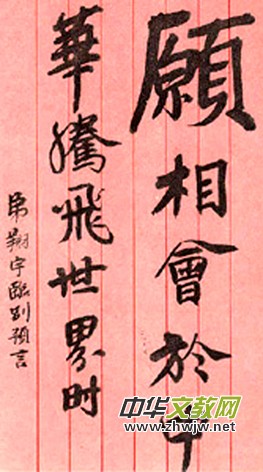 願相會於中
華騰飛世界时
弟翔宇臨别预言
中华文教网
www.zhwjw.net